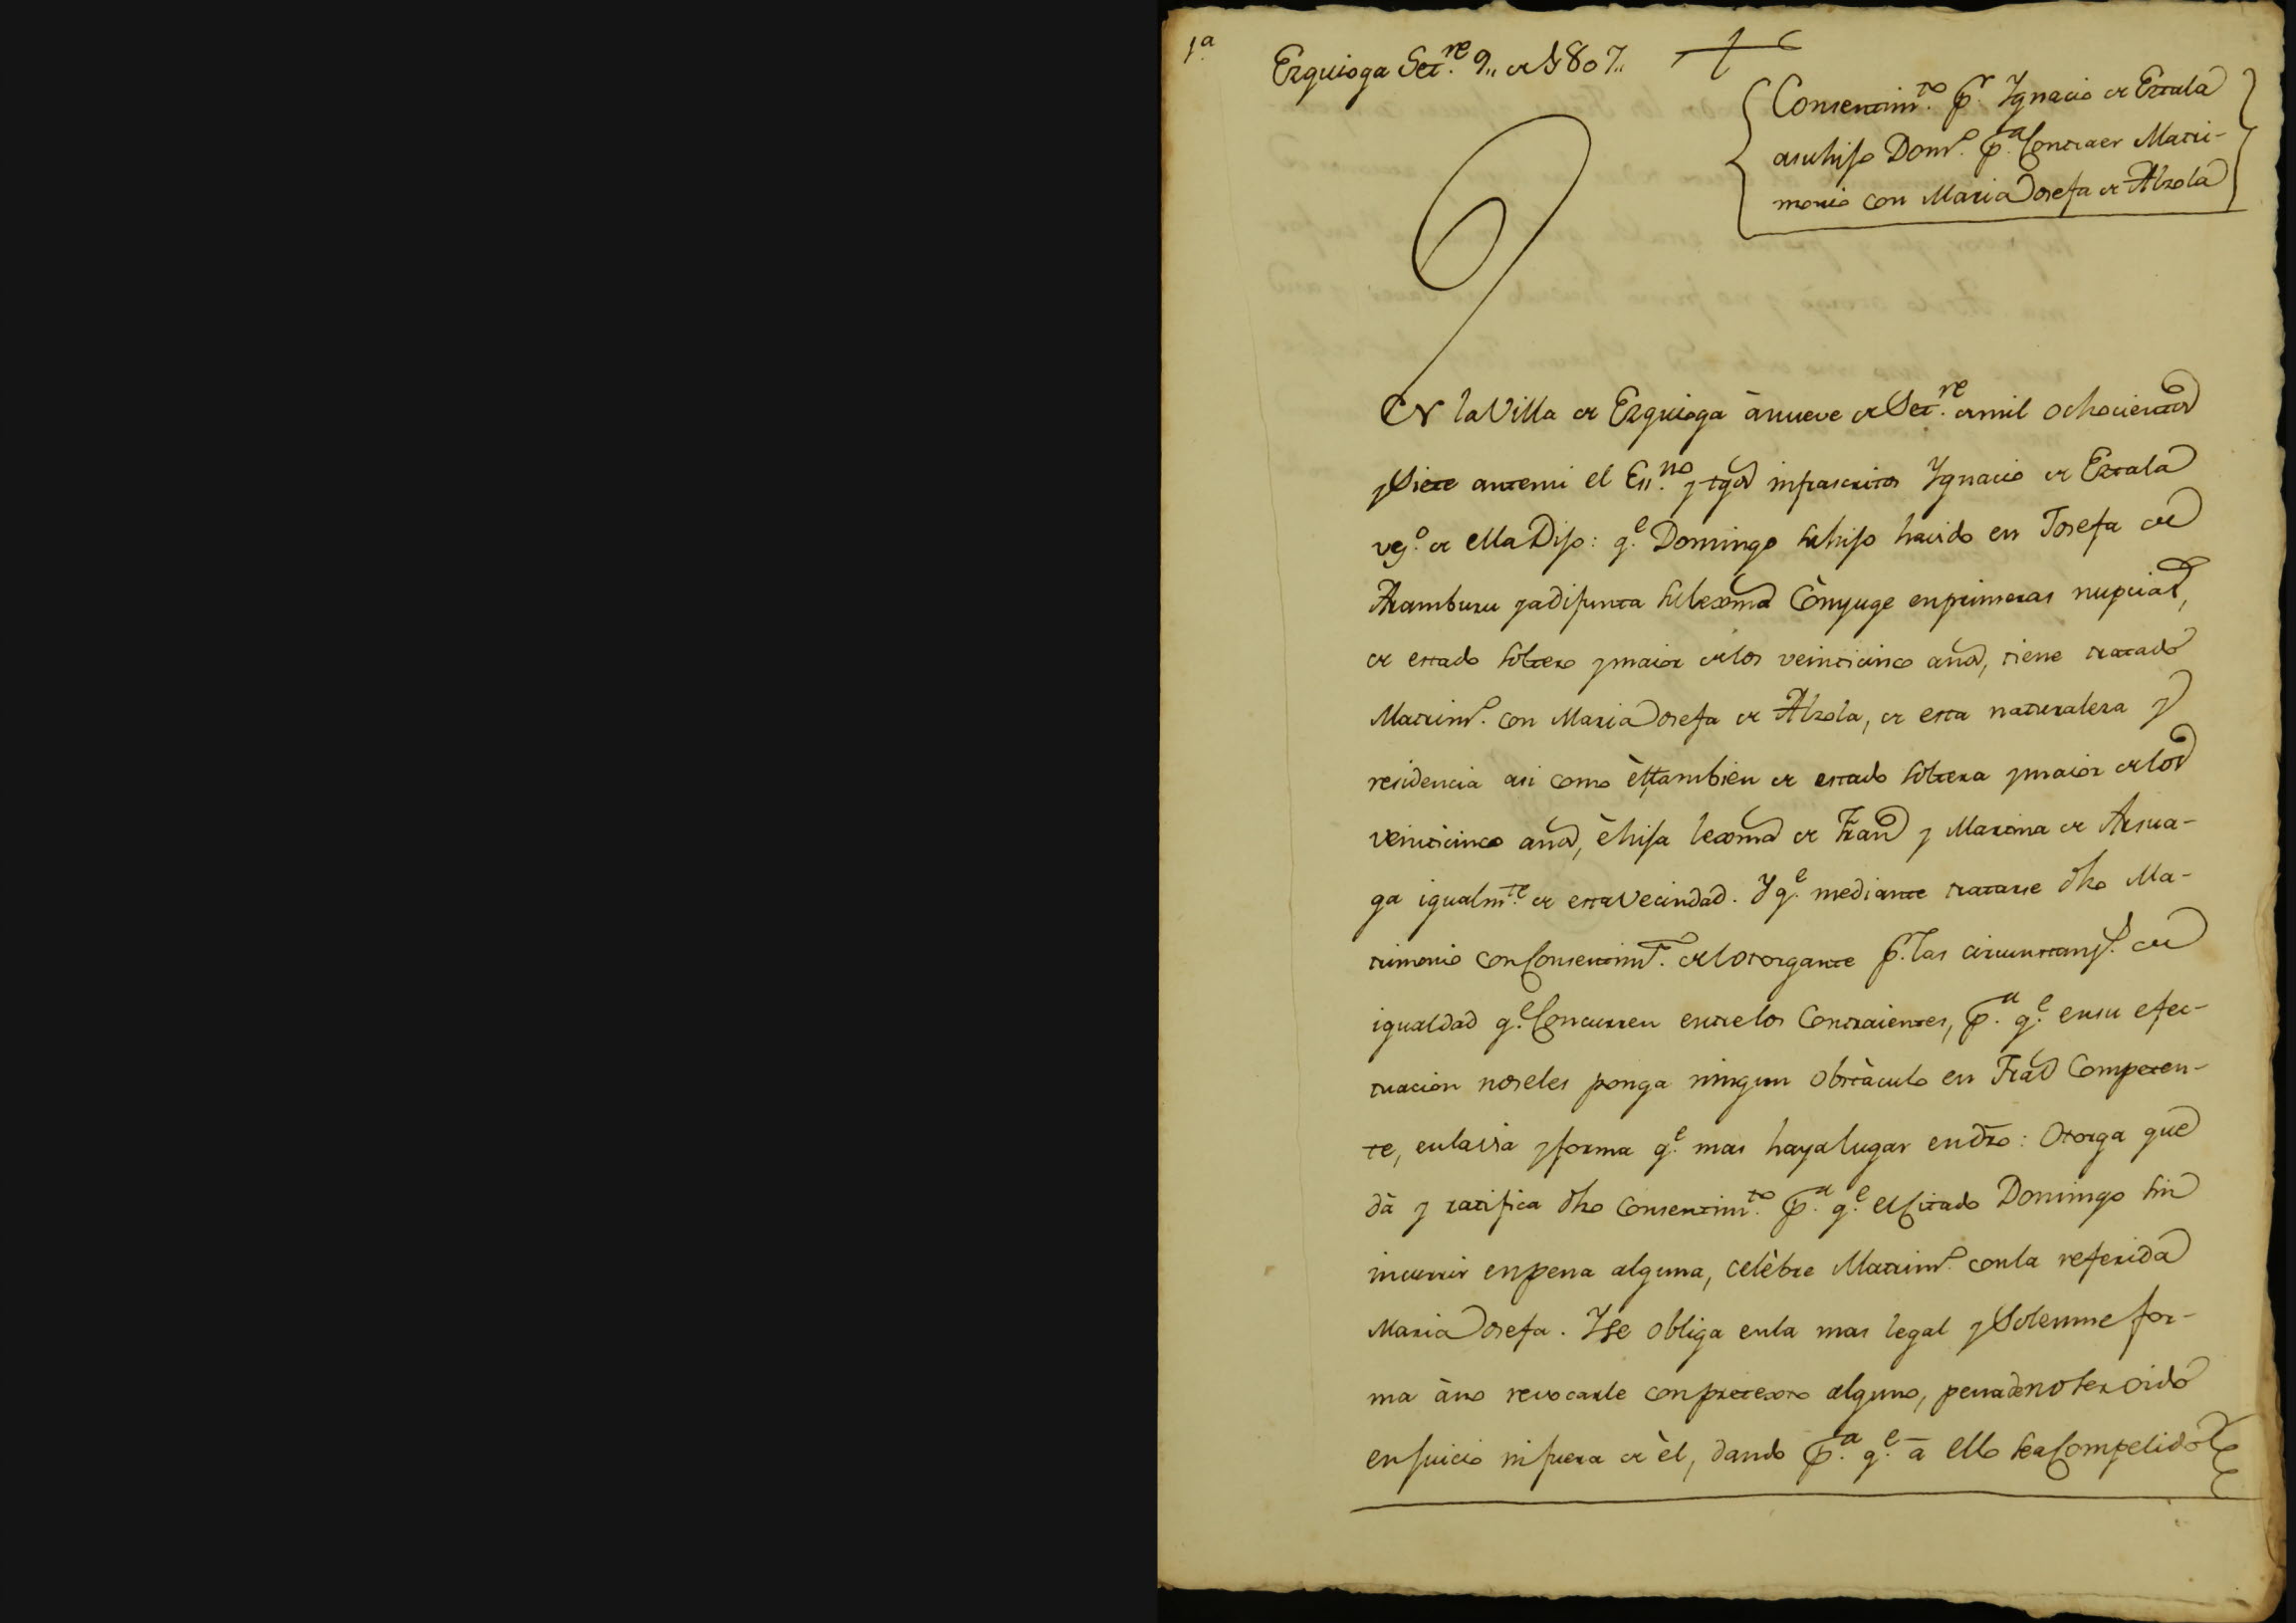 1.ª
Ezquioga Set.re 9,, de 1807,,
Consentim.to p.r Ygnacio de Eztala
a su hijo Dom.o p.a Contraer Matri-
monio con Maria Josefa de Alzola
En la Villa de Ezquioga à nueve de Set.re de mil ochocientos
y Siete ante mi el Ess.no y tgos infrascritos Ygnacio de Eztala
vez.o de ella Dijo: q.e Domingo su hijo havido en Josefa de
Aramburu ya difunta su lexma Cònyuge en primeras nupcias,
de estado soltero y maior de los veinticinco años, tiene tratado
Matrim.o con Maria Josefa de Alzola, de esta naturaleza y
residencia asi como èl, tambien de estado soltera y maior de los
veinticinco años, è hija lexma de Fran y Martina de Arsua-
ga igualm.te de esta Vecindad. Y q.e mediante tratarse dho Ma-
trimonio con Consentim.to del otorgante p.r las circunstanz.s de
igualdad q.e Concurren entre los Contraientes, p.a q.e en su efec-
tuacion no se les ponga ningun obstàculo en Tral Competen-
te, en la via y forma q.e mas haya lugar en dro: Otorga que
dà y ratifica dho Consentim.to p.a q.e el Citado Domingo sin
incurrir en pena alguna, celèbre Matrim.o con la referida
Maria Josefa. Y se obliga en la mas legal y Solemne for-
ma à no revocarle con pretexto alguno, pena de no ser oido
en juicio ni fuera de èl, dando p.a q.e à ello sea Compelido